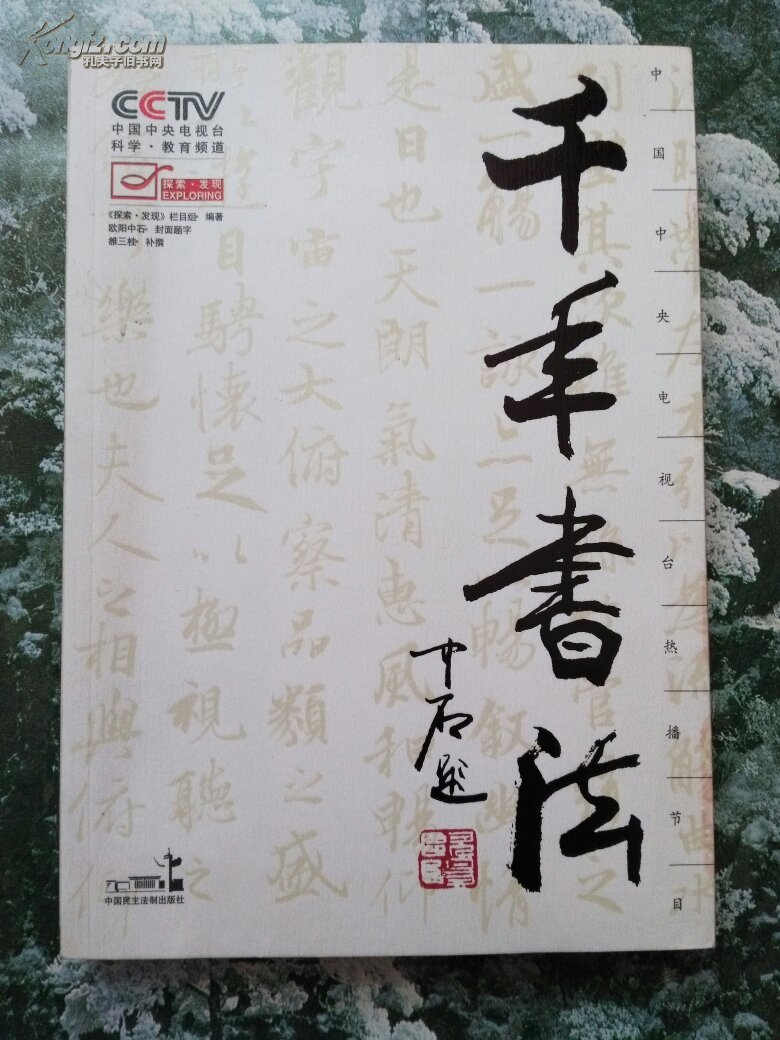 Kongfz.com
孔夫子旧书网
CCTV
中国中央电视台
科学·教育频道
探索·发现
EXPLORING
《探索·发现》栏目组·编著
欧阳中石·封面题字
雒三桂·补撰
千年書法
中石题
中国中央电视台热播节目
盛一觴一詠亦足暢叙幽情
是日也天朗氣清惠風和暢仰
觀宇宙之大俯察品類之盛
遊目騁懷足以極視聽之
樂也夫人之相與俯仰
中国民主法制出版社